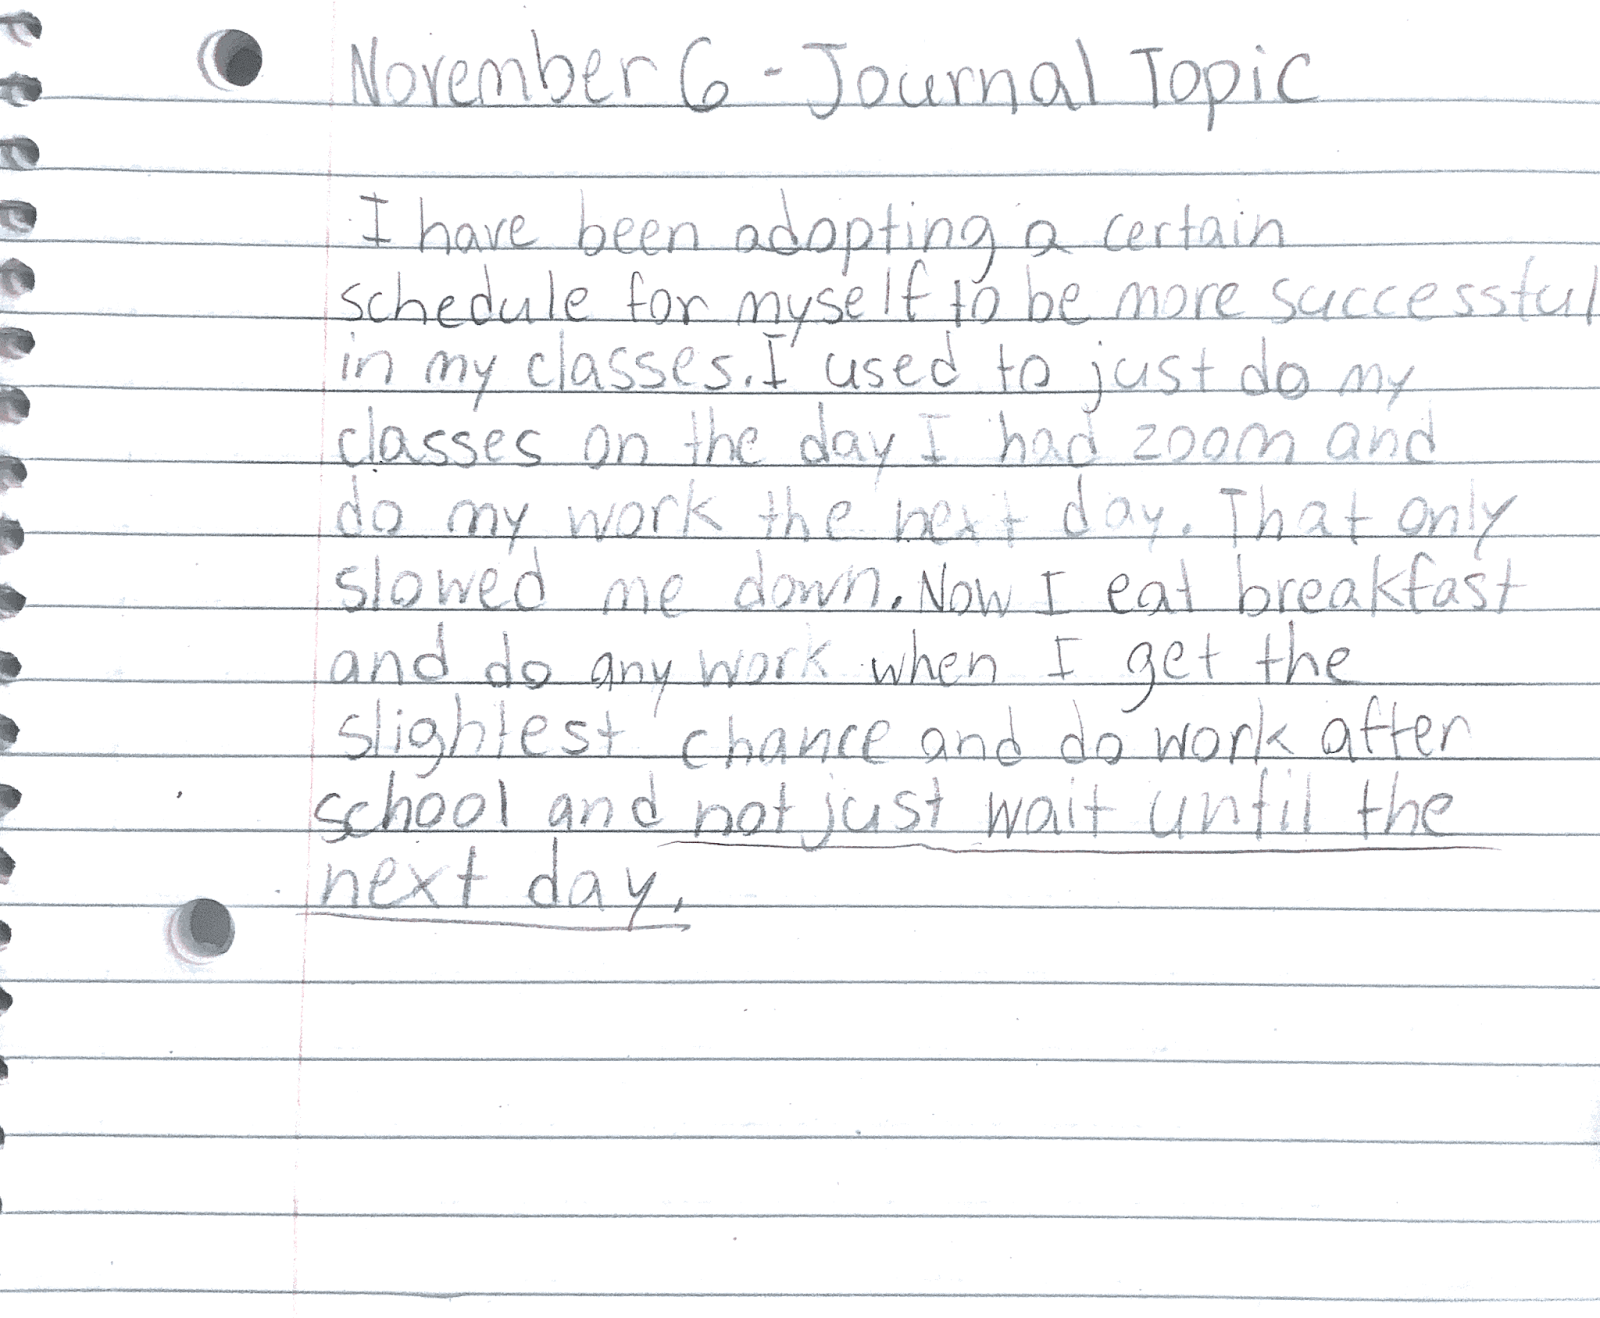 November 6 - Journal Topic
I have been adopting a certain
schedule for myself to be more successful
in my classes. I used to just do my
classes on the day I had zoom and
do my work the next day. That only
slowed me down. Now I eat breakfast
and do any work when I get the
slightest chance and do work after
school and not just wait until the
next day.